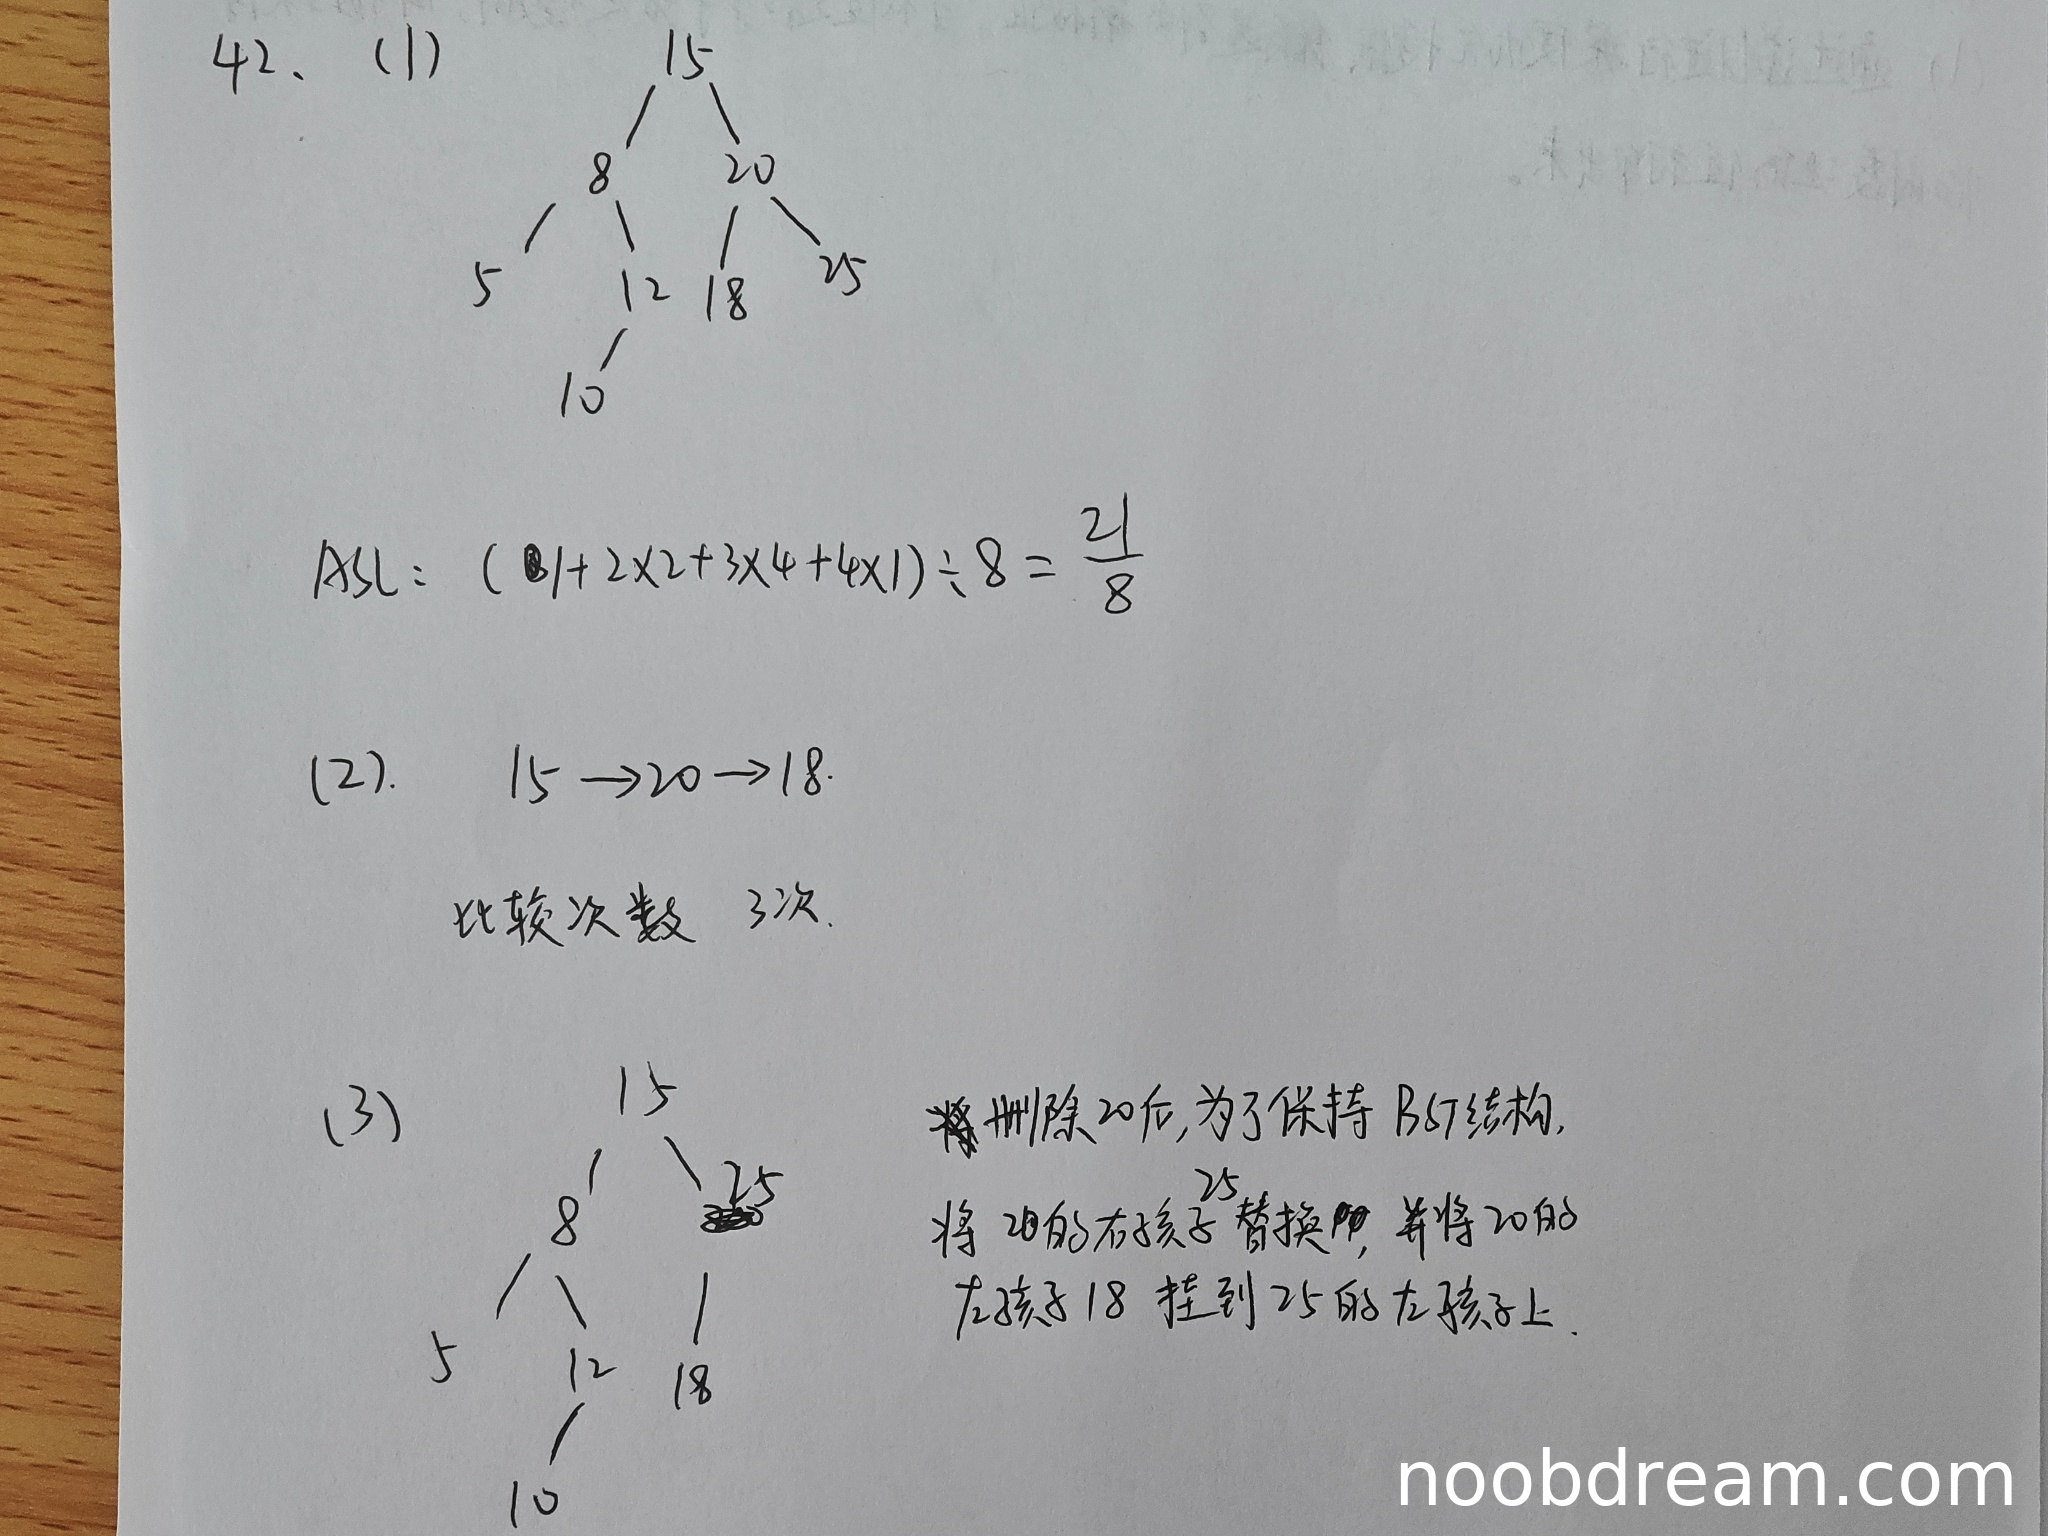 42、 (1) 15
8 20
5 12 18 25
10
ASL: (1+2×2+3×4+4×1)÷8=21/8
(2). 15→20→18.
比较次数 3次.
(3) 15
8 25
5 12 18
10
删除20后,为了保持BST结构,
将20的右孩子25替换,并将20的
左孩子18挂到25的左孩子上.
noobdream.com